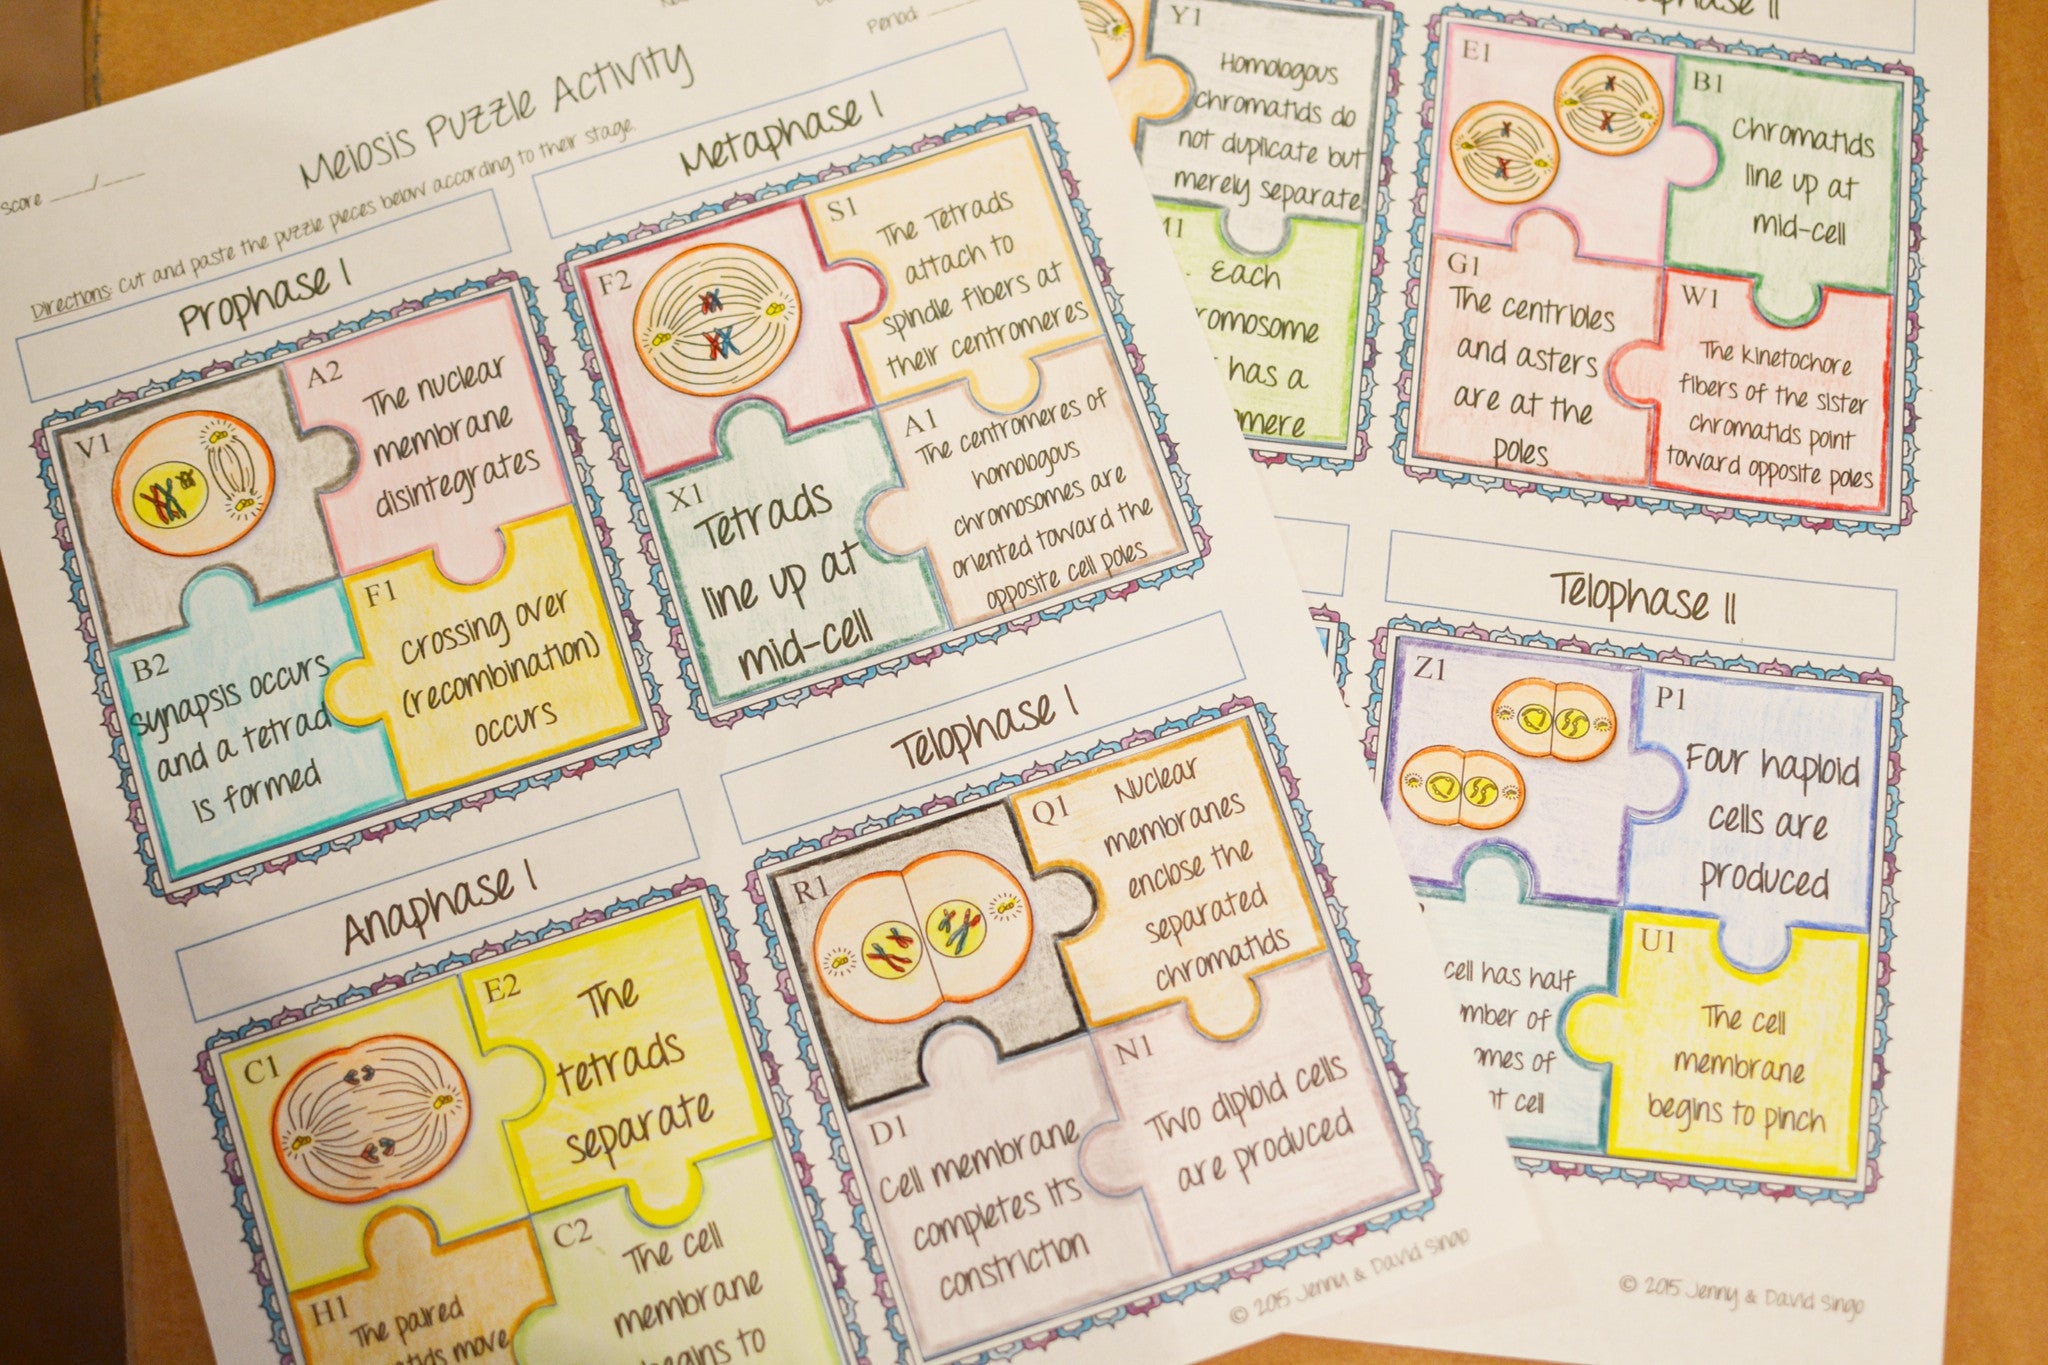 Period
Score ____/____
Meiosis Puzzle Activity
Directions: Cut and paste the puzzle pieces below according to their stage.
Prophase I
V1
A2
The nuclear
membrane
disintegrates
B2
Synapsis occurs
and a tetrad
is formed
F1
Crossing over
(recombination)
occurs
Metaphase I
F2
S1
The Tetrads
attach to
spindle fibers at
their centromeres
X1
Tetrads
line up at
mid-cell
A1
The centromeres of
homologous
chromosomes are
oriented toward the
opposite cell poles
Anaphase I
C1
E2
The
tetrads
separate
H1
The paired
move
C2
The cell
membrane
begins to
Telophase I
R1
Q1
Nuclear
membranes
enclose the
separated
chromatids
D1
Cell membrane
completes its
constriction
N1
Two diploid cells
are produced
© 2015 Jenny & David Singo
Y1
Homologous
chromatids do
not duplicate but
merely separate
Each
has a
II
E1
B1
Chromatids
line up at
mid-cell
G1
The centrioles
and asters
are at the
poles
W1
The kinetochore
fibers of the sister
chromatids point
toward opposite poles
Telophase II
Z1
P1
Four haploid
cells are
produced
cell has half
of
of
cell
U1
The cell
membrane
begins to pinch
© 2015 Jenny & David Singo